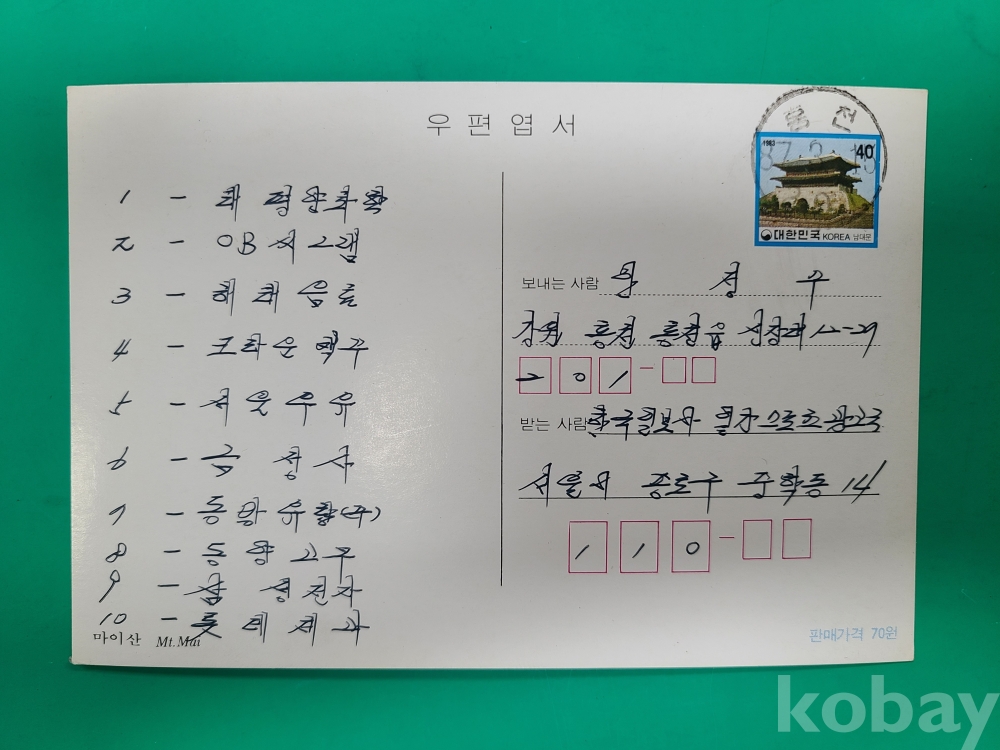 우편엽서
홍천
87.2.
1983 40
대한민국 KOREA 남대문
1 - 태평양화학
2 - OB 시그램
3 - 해태음료
4 - 크라운맥주
5 - 서울우유
6 - 금성사
7 - 동방유량(주)
8 - 동양고무
9 - 삼성전자
10 - 롯데제과
마이산 Mt.Mai
보내는 사람
강원 홍천 홍천읍 12-29
201 -
받는 사람 한국일보사 일간스포츠 광고국
서울시 종로구 중학동 14
110 -
판매가격 70원
kobay